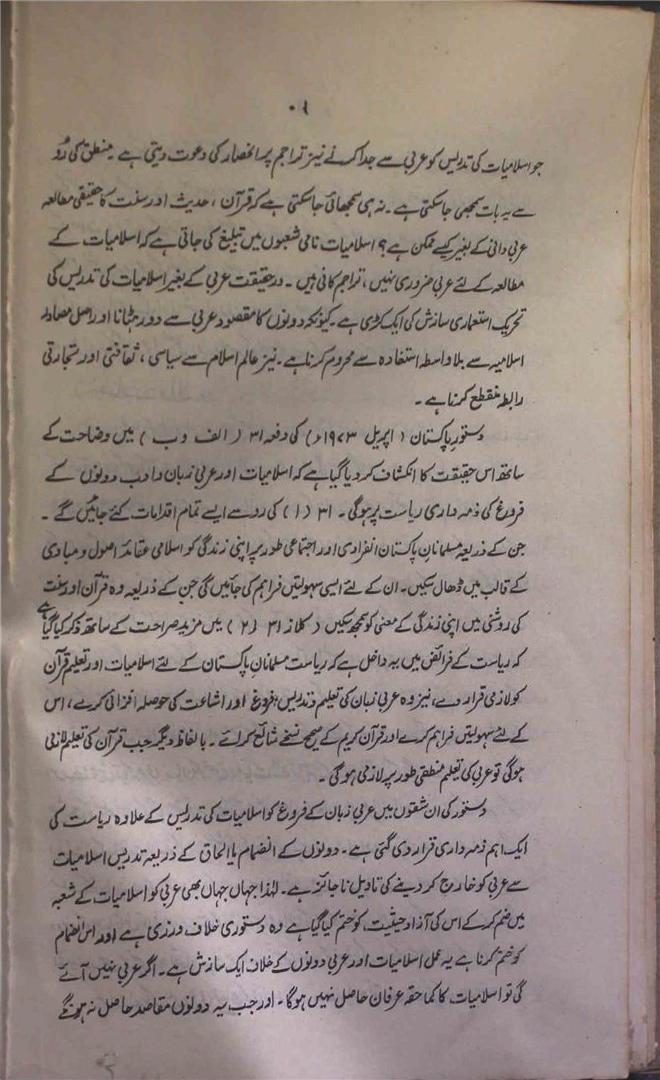 ۰۶
جو اسلامیات کی تدریس کو عربی سے جدا کرنے نیز تراجم پر انحصار کی دعوت دیتی ہے منطق کی رُو
سے یہ بات سمجھی جا سکتی ہے۔ نہ ہی سمجھائی جا سکتی ہے کہ قرآن ، حدیث اور سنت کا حقیقی مطالعہ
عربی دانی کے بغیر کیسے ممکن ہے؟ اسلامیات نامی شعبوں میں تبلیغ کی جاتی ہے کہ اسلامیات کے
مطالعہ کے لئے عربی ضروری نہیں ، تراجم کافی ہیں ۔ درحقیقت عربی کے بغیر اسلامیات کی تدریس کی
تحریک استعماری سازش کی ایک کڑی ہے۔ کیونکہ دونوں کا مقصود عربی سے دور ہٹانا اور اصل مصادر
اسلامیہ سے بلا واسطہ استفادہ سے محروم کرنا ہے۔ نیز عالم اسلام سے سیاسی ، ثقافتی اور تجارتی
رابطہ منقطع کرنا ہے ۔
دستور پاکستان ( اپریل ۱۹۷۳ء) کی دفعہ ۳۱ ( الف و ب ) میں وضاحت کے
ساتھ اس حقیقت کا انکشاف کر دیا گیا ہے کہ اسلامیات اور عربی زبان و ادب دونوں کے
فروغ کی ذمہ داری ریاست پر ہوگی ۔ ۳۱ (۱) کی رو سے ایسے تمام اقدامات کئے جائیں گے ۔
جن کے ذریعہ مسلمانانِ پاکستان انفرادی اور اجتماعی طور پر اپنی زندگی کو اسلامی عقائد اصول و مبادی
کے قالب میں ڈھال سکیں۔ ان کے لئے ایسی سہولتیں فراہم کی جائیں گی جن کے ذریعہ وہ قرآن اور سنت
کی روشنی میں اپنی زندگی کے معنی کو سمجھ سکیں ( کلاز ۳۱ (۲) میں مزید صراحت کے ساتھ ذکر کیا گیا ہے
کہ ریاست کے فرائض میں یہ داخل ہے کہ ریاست مسلمانانِ پاکستان کے لئے اسلامیات اور تعلیم قرآن
کو لازمی قرار دے، نیز وہ عربی زبان کی تعلیم و تدریس، فروغ اور اشاعت کی حوصلہ افزائی کرے، اس
کے لئے سہولتیں فراہم کرے اور قرآن کریم کے صحیح نسخے شائع کرائے ۔ بالفاظ دیگر جب قرآن کی تعلیم لازمی
ہوگی تو عربی کی تعلیم منطقی طور پر لازمی ہوگی ۔
دستور کی ان شقوں میں عربی زبان کے فروغ کو اسلامیات کی تدریس کے علاوہ ریاست کی
ایک اہم ذمہ داری قرار دی گئی ہے ۔ دونوں کے انضمام یا الحاق کے ذریعہ تدریس اسلامیات
سے عربی کو خارج کر دینے کی تاویل ناجائز ہے۔ لہٰذا جہاں جہاں بھی عربی کو اسلامیات کے شعبہ
میں ضم کر کے اس کی آزاد حیثیت کو ختم کیا گیا ہے وہ دستوری خلاف ورزی ہے اور اس انضمام
کو ختم کرنا ہے یہ عمل اسلامیات اور عربی دونوں کے خلاف ایک سازش ہے ۔ اگر عربی نہیں آئے
گی تو اسلامیات کا کما حقہ عرفان حاصل نہیں ہوگا ۔ اور جب یہ دونوں مقاصد حاصل نہ ہونگے